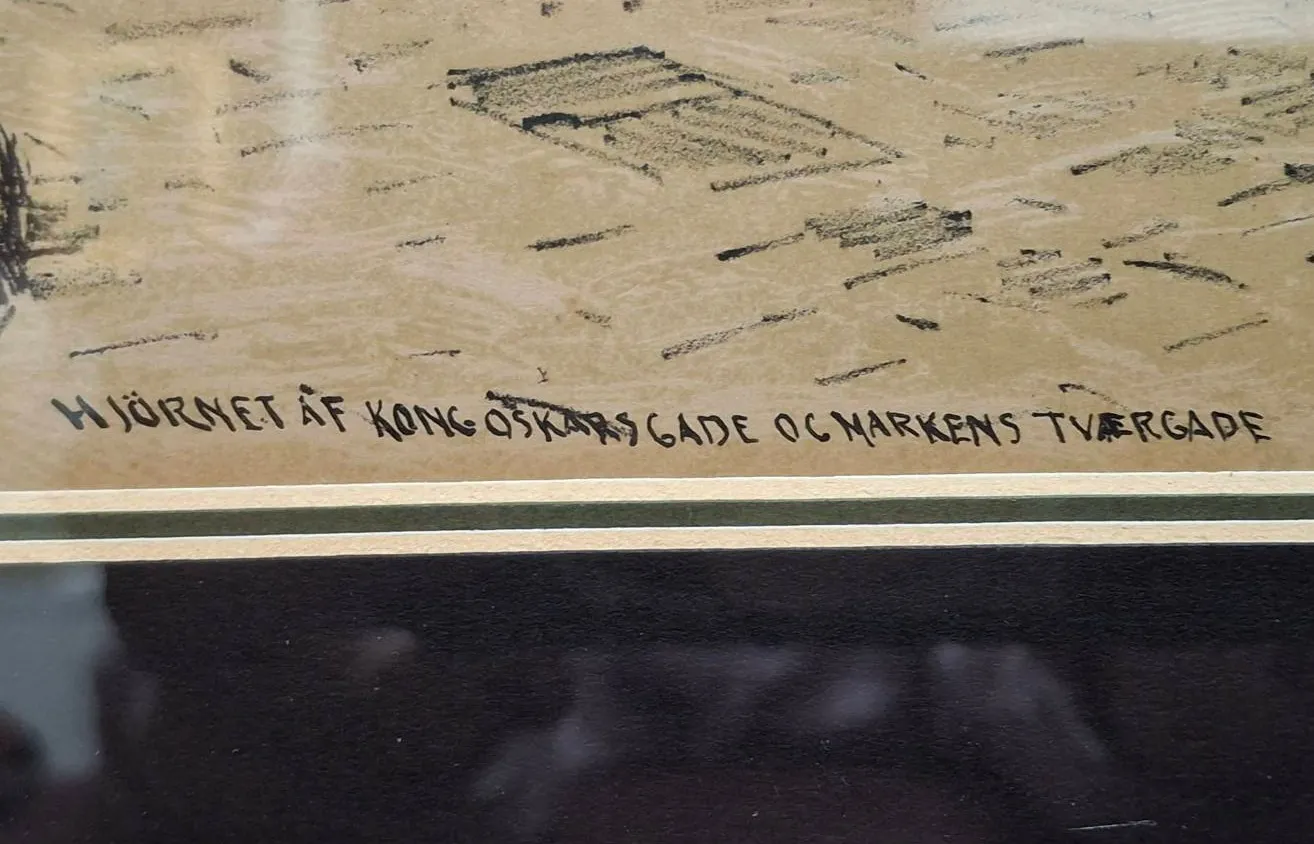 HJÖRNET AF KONG OSKARSGADE OG MARKENS TVÆRGADE